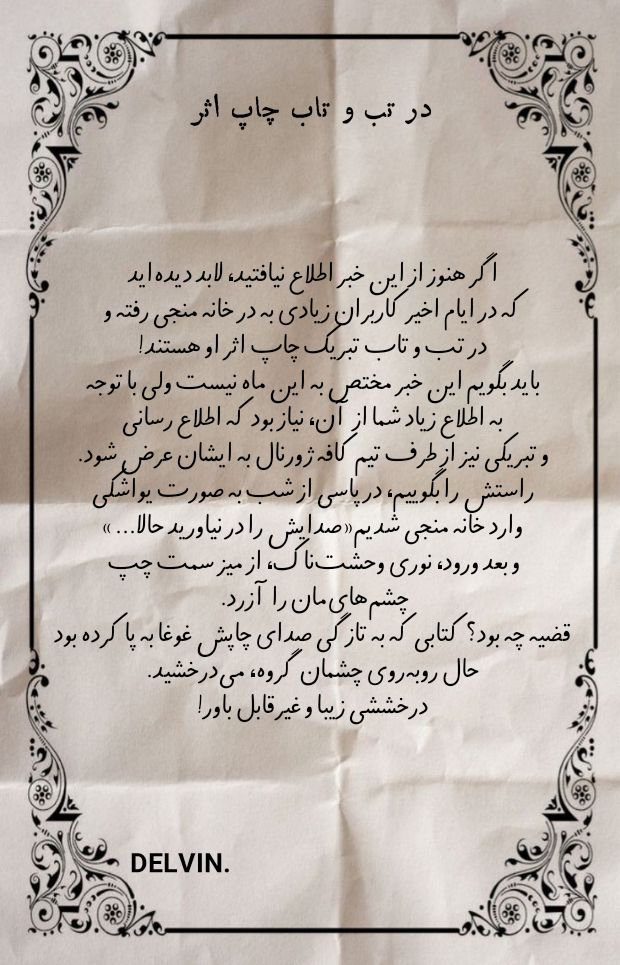 در تب و تاب چاپ اثر
اگر هنوز از این خبر اطلاع نیافتید، لابد دیده اید
که در ایام اخیر کاربران زیادی به در خانه منجی رفته و
در تب و تاب تبریک چاپ اثر او هستند!
باید بگویم این خبر مختص به این ماه نیست ولی با توجه
به اطلاع زیاد شما از آن، نیاز بود که اطلاع رسانی
و تبریکی نیز از طرف تیم کافه ژورنال به ایشان عرض شود.
راستش را بگوییم، در پاسی از شب به صورت یواشکی
وارد خانه منجی شدیم«صدایش را در نیاورید حالا... »
و بعد ورود، نوری وحشت‌ناک، از میز سمت چپ
چشم‌های‌مان را آزرد.
قضیه چه بود؟ کتابی که به تازگی صدای چاپش غوغا به پا کرده بود
حال روبه‌روی چشمان گروه، می‌درخشید.
درخششی زیبا و غیرقابل باور!
DELVIN.